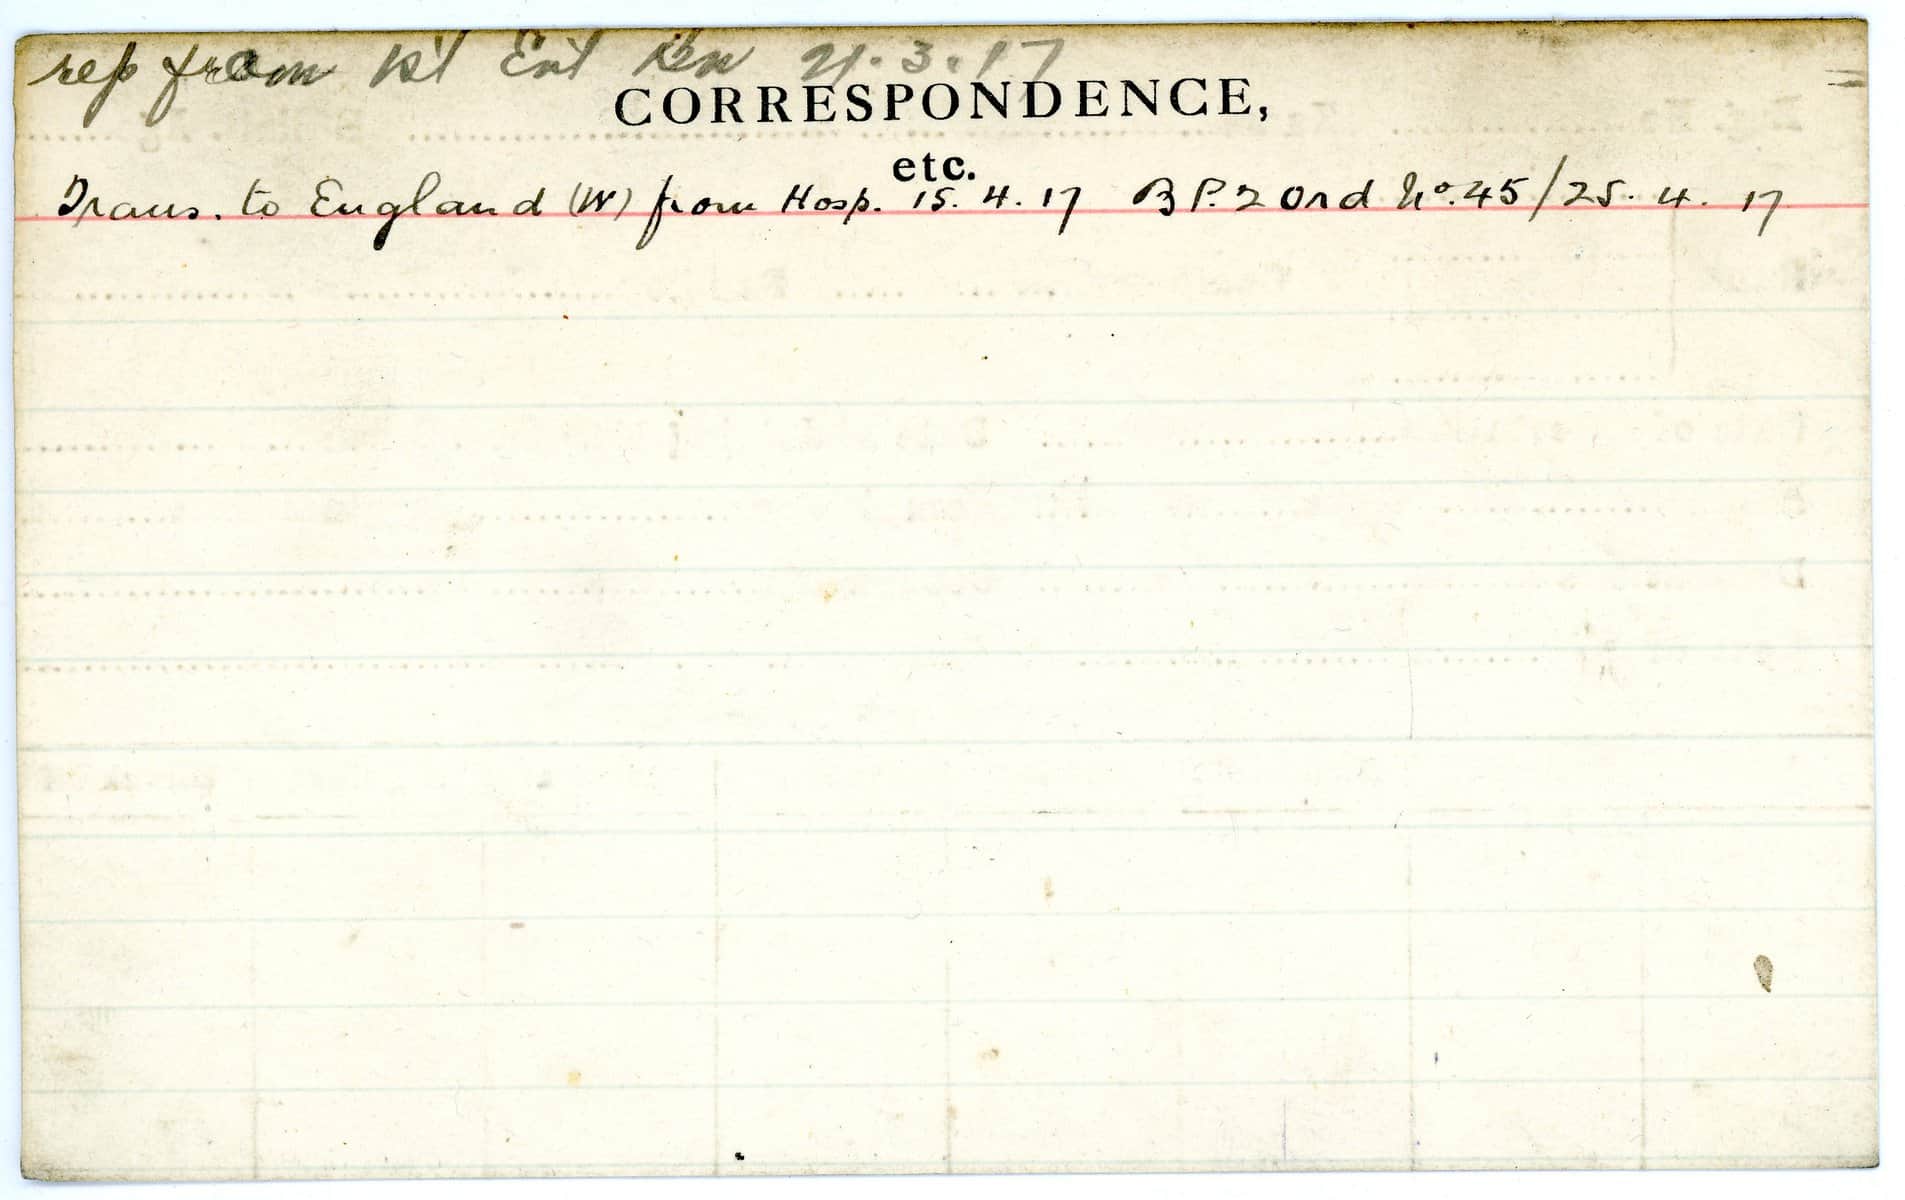 rep from 1st Ent Bn 21.3.17
CORRESPONDENCE,
etc.
Trans. to England (W) from Hosp. 15. 4. 17 B P. 2 Ord No. 45/25. 4. 17